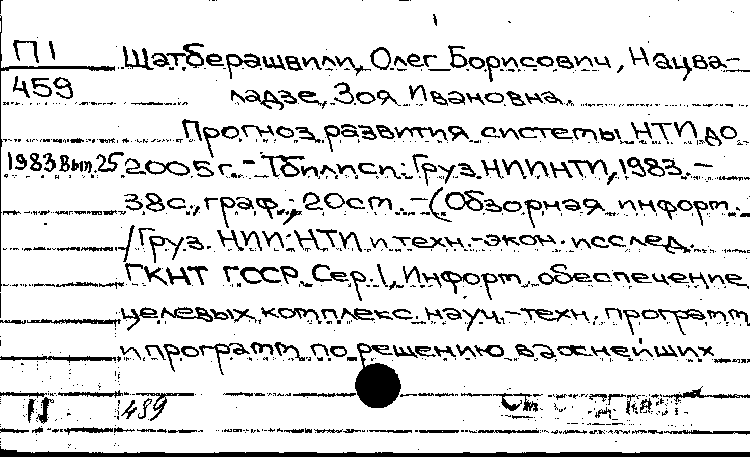 П1
459
Шатберашвили, Олег Борисович, Нацва-
ладзе, Зоя Ивановна.
Прогноз развития системы НТИ до
1983 Вып. 25 2005 г. - Тбилиси: Груз. НИИНТИ, 1983. -
38 с., граф.; 20 см. - (Обзорная информ.
/Груз. НИИ НТИ и техн.-экон. исслед.
ГКНТ ГССР. Сер. 1, Информ. обеспечение
целевых комплекс. науч.-техн. программ
и программ по решению важнейших
489